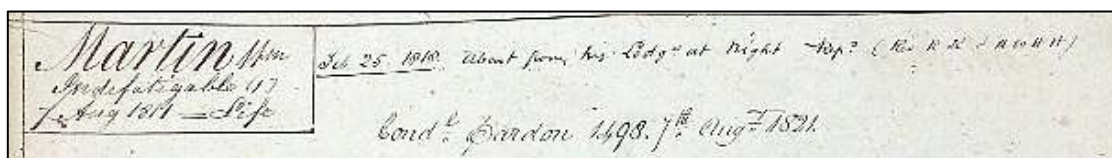 Martin Wm
Indefatigable (1)
7 Aug 1811 = Life
Feb 25 1818 Absent from his Lodgs at Night Repd (Rev R K
Condl Pardon 1498. 7th Augt 1821.